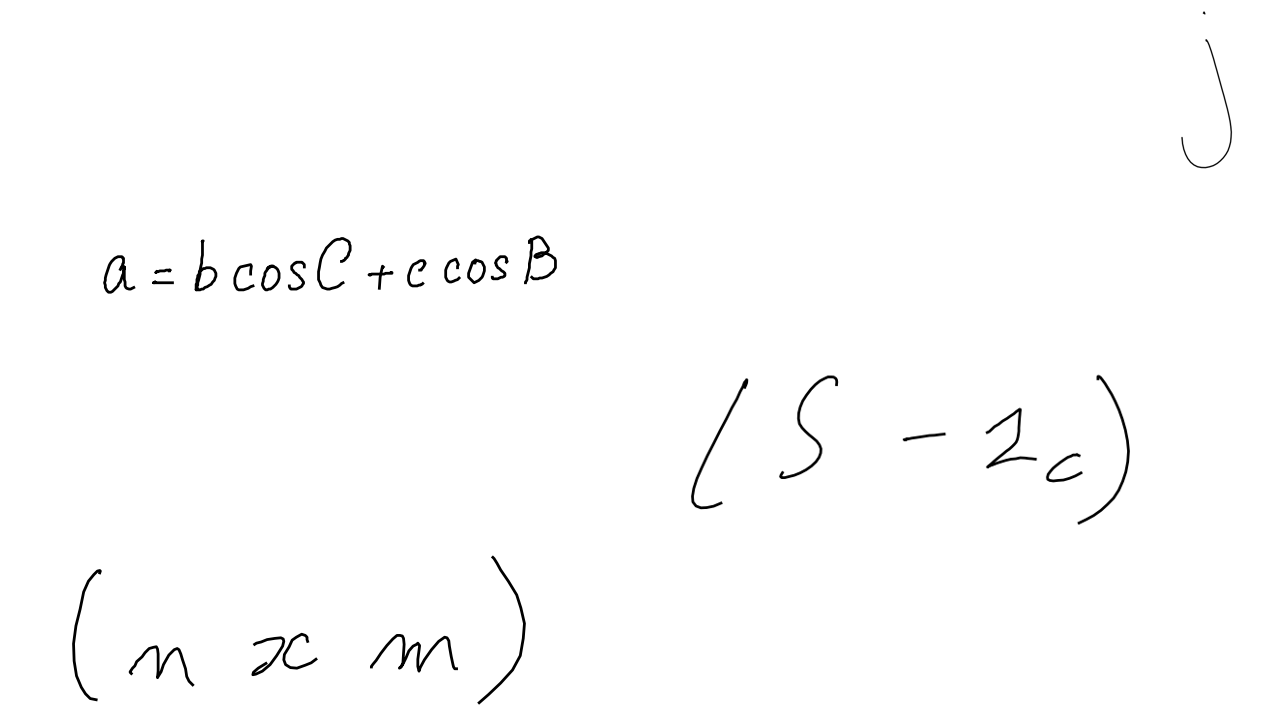 j
a = b cos C + c cos B
(S - 2c)
(n x m)